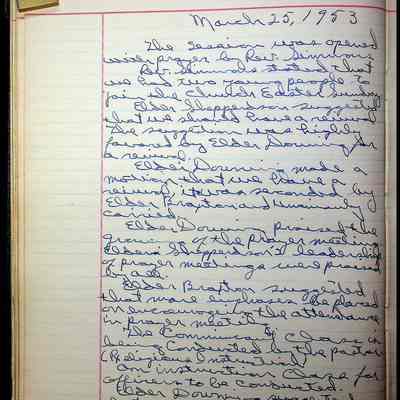 March 25, 1953
The Session was opened
with prayer by Rev. Simmons
Rev. Simmons stated that
we had two young people to
join the Church Easter Sunday
Elder Shepperdson suggested
that we should have a revival
The suggestion was highly
favored by Elder Downing for
a revival.
Elder Downing made a
motion that we have a
revival. It was seconded by
Elder Braxton and unanimously
carried.
Elder Downing praised the
growth of the prayer meeting
Elder Shepperdson's leadership
of prayer meetings were praised
by all.
Elder Braxton suggested
that more emphases be placed
on encouraging the attendance
in prayer meeting.
The Communicants Class is
being conducted by the pastor
(Religious Instruction)
An instruction Class for
officers to be conducted.
Elder Downing suggested